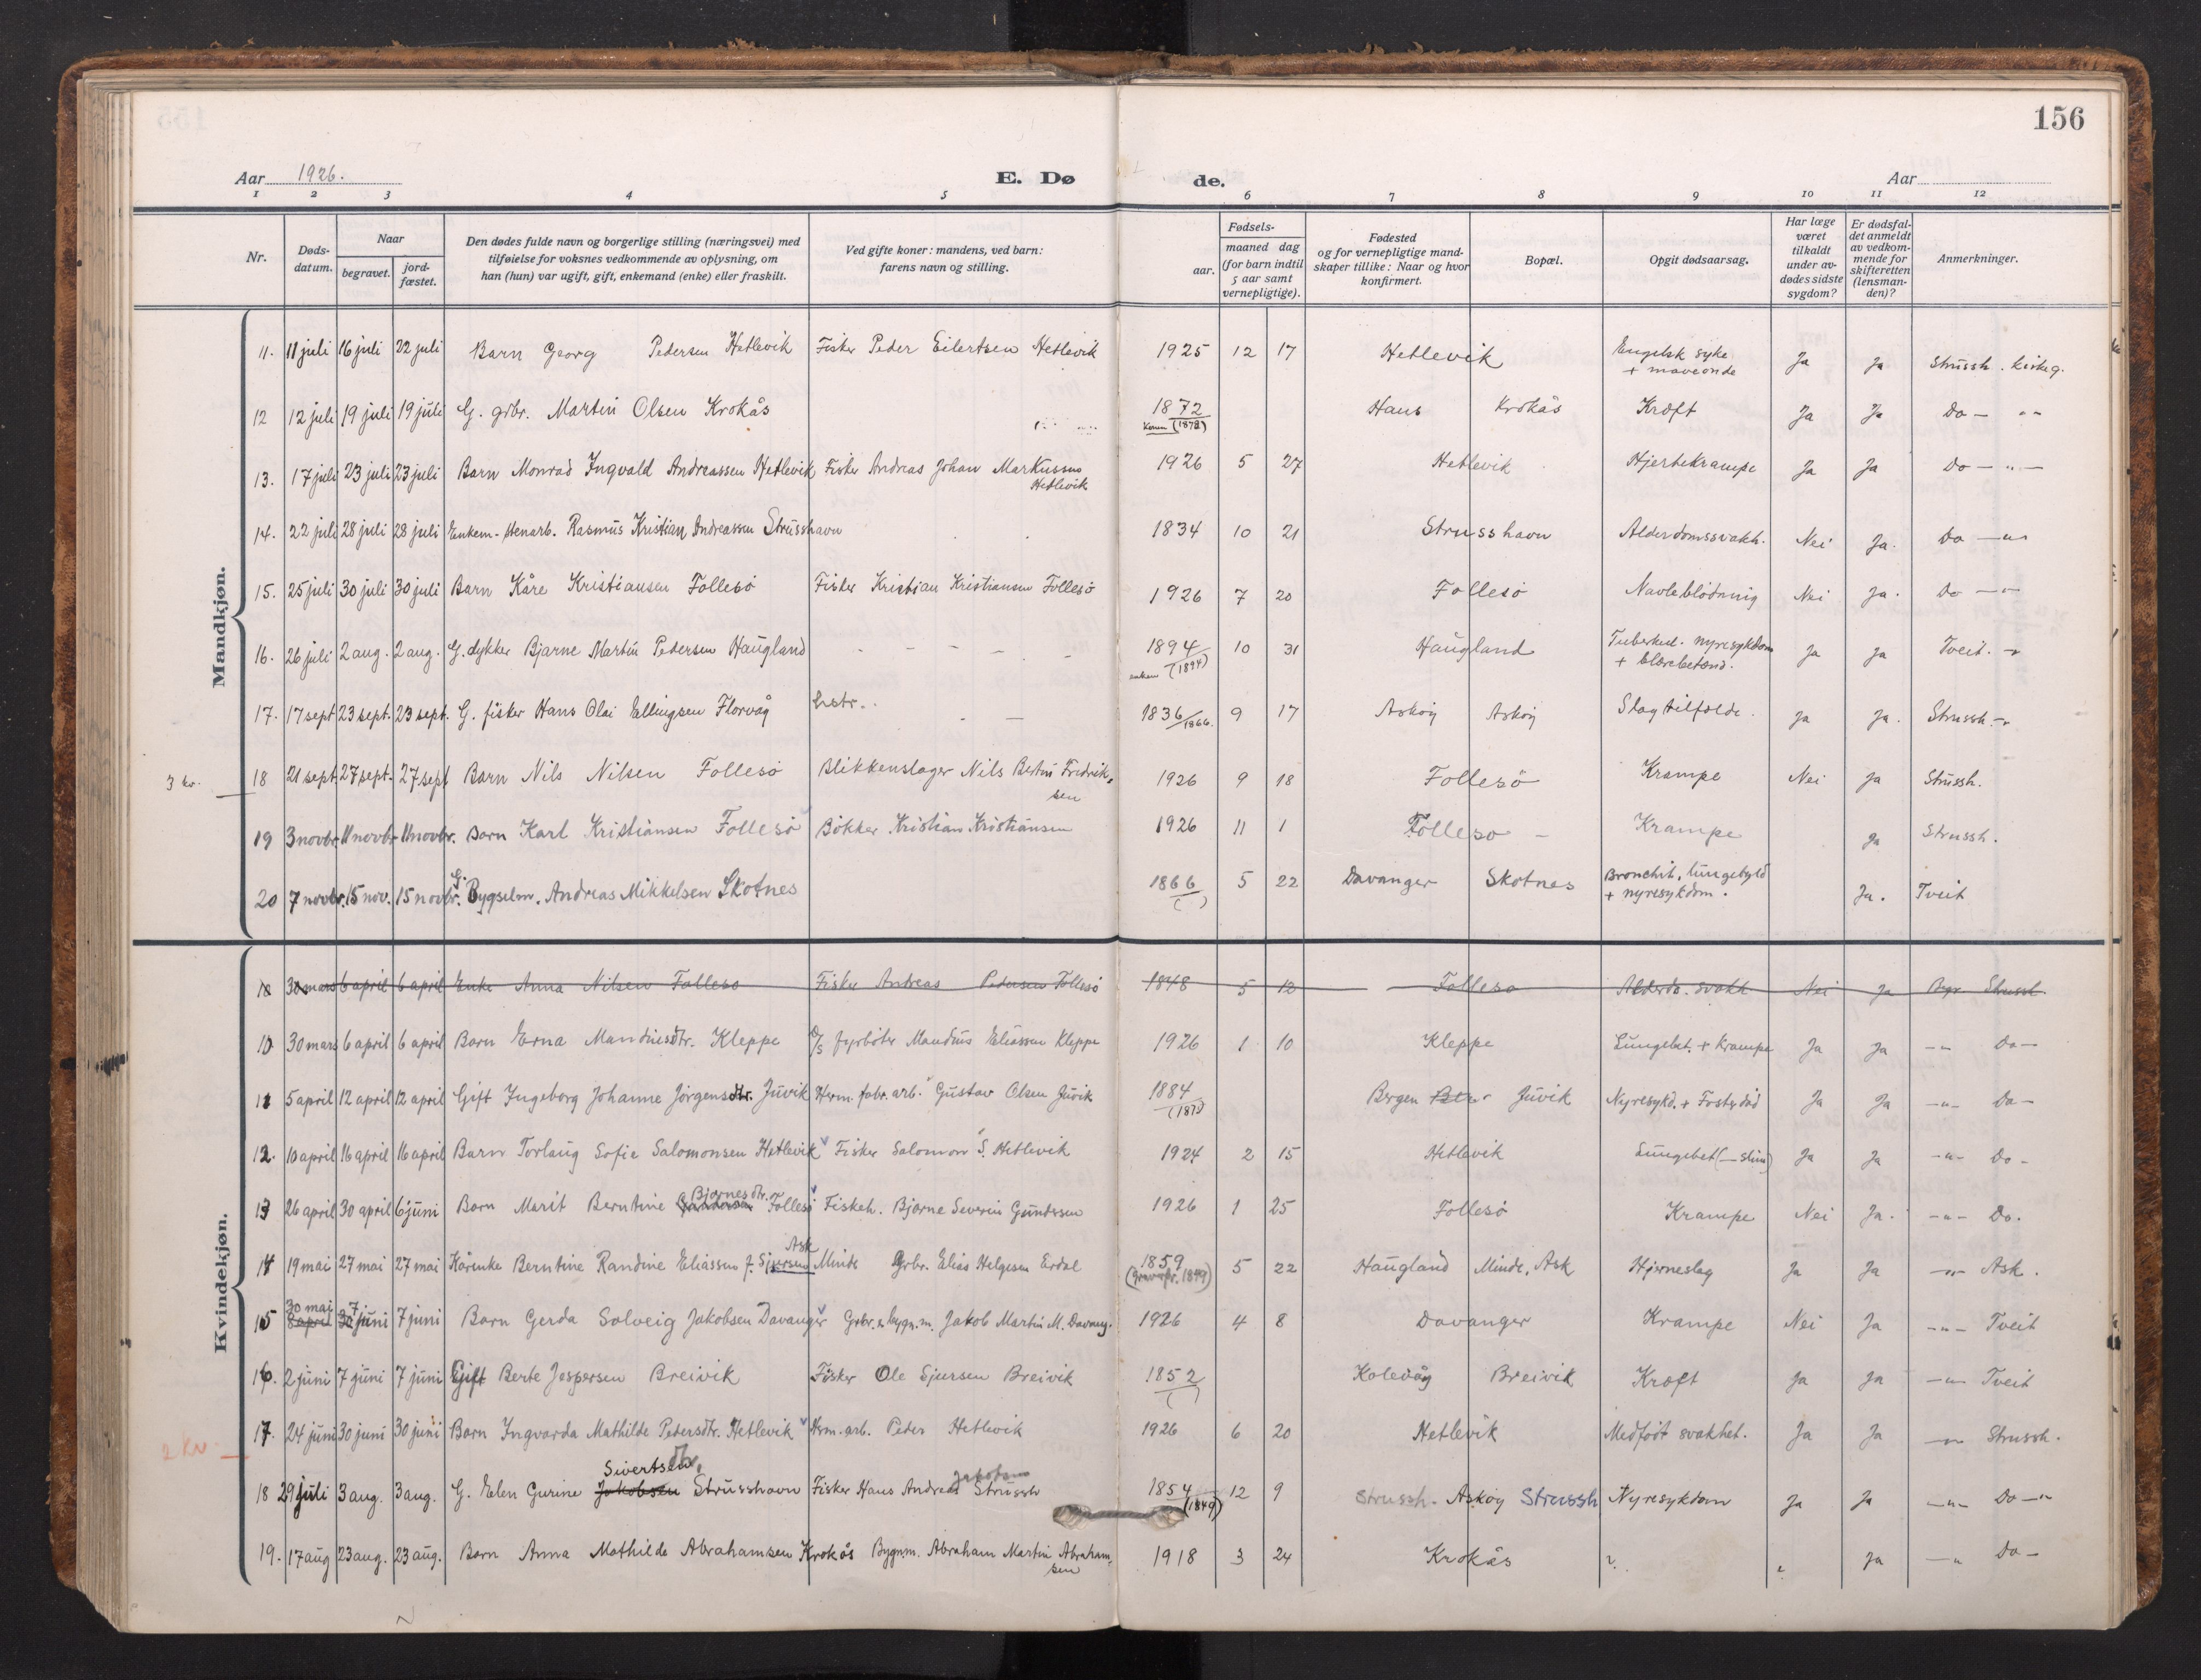 156
Aar 1926.
E. Dø de.
Aar
1 2 3 4 5 6 7 8 9 10 11 12
Nr.
Døds-datum.
Naar
begravet.
jord-fæstet.
Den dødes fulde navn og borgerlige stilling (næringsvei) med
tilføielse for voksnes vedkommende av oplysning, om
han (hun) var ugift, gift, enkemand (enke) eller fraskilt.
Ved gifte koner: mandens, ved barn:
farens navn og stilling.
Fødsels-
aar.
maaned dag
(for barn indtil
5 aar samt
vernepligtige).
Fødested
og for vernepligtige mand-
skaper tillike: Naar og hvor
konfirmert.
Bopæl.
Opgit dødsaarsag.
Har læge
været
tilkaldt
under av-
dødes sidste
sygdom?
Er dødsfal-
det anmeldt
av vedkom-
mende for
skifteretten
(lensman-
den)?
Anmerkninger.
Mandkjøn.
11. 11 juli 16 juli 22 juli Barn Georg Pedersen Hetlevik Fisker Peder Eilertsen Hetlevik 1925 12 17 Hetlevik Engelsk syke + maveonde Ja Ja Strussh. kirkeg.
12 12 juli 19 juli 19 juli G. grbr. Martin Olsen Krokås 1872 Konen (1878) Haus Krokås Kræft Ja Ja Do — "
13. 17 juli 23 juli 23 juli Barn Monrad Ingvald Andreassen Hetlevik Fisker Andreas Johan Markussen Hetlevik 1926 5 27 Hetlevik Hjertekrampe Ja Ja Do — " —
14. 22 juli 28 juli 28 juli Enkem. Stenarb. Rasmus Kristian Andreassen Strusshavn 1834 10 21 Strusshavn Alderdomssvakh. Nei Ja. Do — " —
15. 25 juli 30 juli 30 juli Barn Kåre Kristiansen Follesø Fisker Kristian Kristiansen Follesø 1926 7 20 Follesø Navleblödning Nei Ja. Do — " —
16. 26 juli 2 aug. 2 aug. G. dykker Bjarne Martin Pedersen Haugland 1894 enken (1894) 10 31 Haugland Tuberkul. nyresykdom + blærebetænd. Ja Ja Tveit. — "
17. 17 sept 23 sept. 23 sept. G. fisker Hans Olai Ellingsen Florvåg hstr. 1836/1866. 9 17 Askøy Askøy Slagtilfælde. Ja Ja. Strussh. — "
3 kr. 18 21 sept. 27 sept. 27 sept Barn Nils Nilsen Follesø Blikkenslager Nils Bertin Fredriksen 1926 9 18 Follesø Krampe Nei Ja Strussh.
19 3 novbr. 11 novbr. 11 novbr. Barn Karl Kristiansen Follesø Bökker Kristian Kristiansen 1926 11 1 Follesø — Krampe Ja Strussh.
20 7 novbr. 15 nov. 15 novbr. G. Bygselm. Andreas Mikkelsen Skotnes 1866 ( ) 5 22 Davanger Skotnes Bronchit, lungebyld + nyresykdom. Ja. Tveit
Kvindekjøn.
10 30 mars 6 april 6 april Enke Anna Nilsen Follesø Fisker Andreas Pedersen Follesø 1848 5 12 Follesø Alderdo. svakh Nei Ja Strussh.
10 30 mars 6 april 6 april Barn Erna Mandiusdtr. Kleppe D/S fyrböter Mandius Eliassen Kleppe 1926 1 10 Kleppe Lungebet. + Krampe Ja Ja — " — Do —
11 5 april 12 april 12 april Gift Ingeborg Johanne Jørgensdtr. Juvik Herm. fabr. arb. Gustav Olsen Juvik 1884 Bergen Juvik Nyresykd. + Fosterdød Ja Ja — " — Do —
12. 10 april 16 april 16 april Barn Torlaug Sofie Salomonsen Hetlevik Fisker Salomon S. Hetlevik 1924 2 15 Hetlevik Lungebet Ja Ja — " — Do —
13 26 april 30 april 6 juni Barn Marit Berntine Bjarnesdtr. Follesø Fiskeh. Bjarne Severin Gundersen 1926 1 25 Follesø Krampe Nei Ja. — " — Do.
14 19 mai 27 mai 27 mai Kårenke Berntine Randine Eliassen f. Sjursen Ask Minde Grbr. Elias Helgesen Erdal 1859 5 22 Haugland Minde, Ask Hjerneslag Ja Ja — " — Ask.
15 30 mai 8 april 7 juni 7 juni Barn Gerda Solveig Jakobsen Davanger Grbr. & bygn. m. Jakob Martin M. Davang. 1926 4 8 Davanger Krampe Nei Ja — " — Tveit
16. 2 juni 7 juni 7 juni Gift Berte Jespersen Breivik Fisker Ole Sjursen Breivik 1852 ( ) Kolevåg Breivik Kræft Ja Ja — " — Tveit
2 kr — 17. 24 juni 30 juni 30 juni Barn Ingvarda Mathilde Petersdtr. Hetlevik Herm. arb. Peder Hetlevik 1926 6 20 Hetlevik Medfödt svakhet. Ja Ja — " — Strussh.
18 29 juli 3 aug. 3 aug. G. Elen Gurine Jakobsen Sivertsdtr. Strusshavn Fisker Hans Andreas Jakobsen Strussh 1854 (1849) 12 9 Strussh. Askøy Strussh Nyresykdom Ja Ja — " — Do — "
19. 17 aug 23 aug. 23 aug. Barn Anna Mathilde Abrahamsen Krokås Bygnm. Abraham Martin Abrahamsen 1918 3 24 Krokås ? ? Ja — " Do —